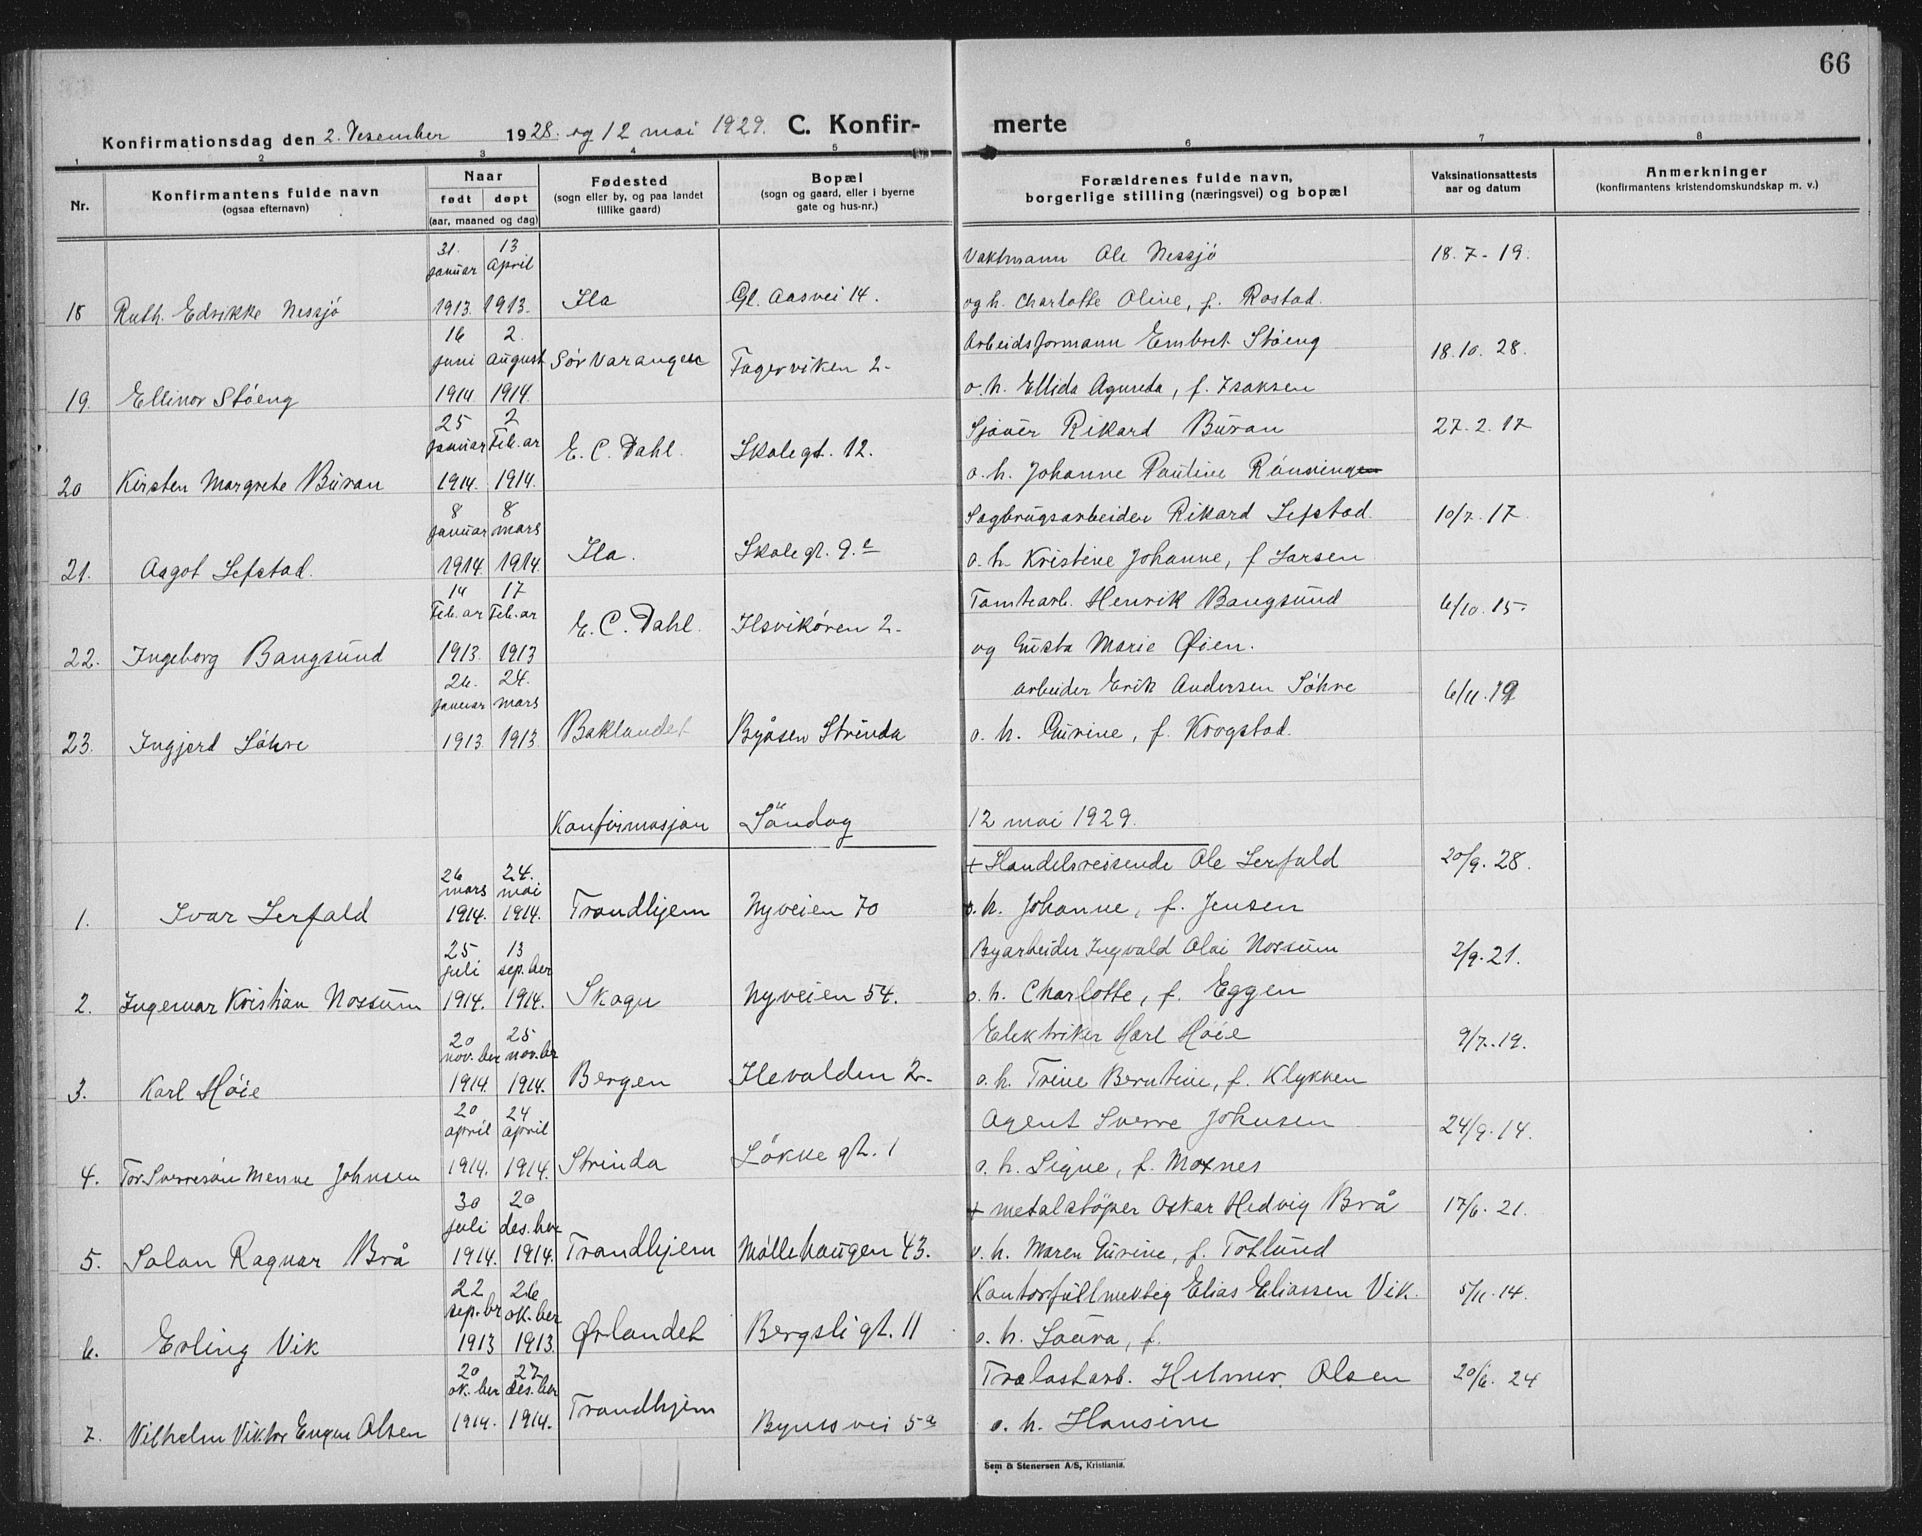 66
Konfirmationsdag den 2. Desember 1928. og 12 mai 1929. C. Konfir- merte
1 2 3 4 5 6 7 8
Nr.
Konfirmantens fulde navn
(ogsaa efternavn)
Naar
født døpt
(aar, maaned og dag)
Fødested
(sogn eller by, og paa landet
tillike gaard)
Bopæl
(sogn og gaard, eller i byerne
gate og hus-nr.)
Forældrenes fulde navn,
borgerlige stilling (næringsvei) og bopæl
Vaksinationsattests
aar og datum
Anmerkninger
(konfirmantens kristendomskundskap m. v.)
31. 13 Vaktmann Ole Nessjö 18.7-19.
januar April
18 Ruth. Edrikke Nessjö 1913. 1913. Ila Gl. Aasvei 14. og h. Charlotte Oline, f. Rostad.
16 2. Arbeidsformann Embret Stöeng 18.10.28.
juni August Sør Varanger Fagerviken 2-
19. Ellinor Stöeng 1914 1914. o. h. Ellida Agneda, f. Isaksen
25 2 Sjauer Rikard Buran 27.2.17
januar Feb.ar E. C. Dahl. Skolegt. 12.
20 Kirsten Margrete Buran 1914. 1914. o. h. Johanne Pauline Rönningen
8 8 Sagbrugsarbeider Rikard Lefstad. 10/7.17.
januar mars
21. Aagot Lefstad. 1914 1914. Ila. Skolegt. 9. o. h. Kristine Johanne, f Larsen
14 17 Tomtearb. Henrik Bangsund 6/10.15-
Feb.ar Feb.ar E. C. Dahl. Ilsvikøren 2-
22. Ingeborg Bangsund 1913. 1913 og Gusta Marie Øien.
26. 24. arbeider Erik Andersen Söhre 6/11.19
januar mars
23. Ingjerd Söhre 1913 1913 Baklandet Byåsen Strinda o. h. Gurine, f. Krogstad.
Konfirmasjon Söndag 12 mai 1929.
26 24. + Handelsreisende Ole Lerfald 20/9.28.
mars mai
1. Ivar Lerfald 1914. 1914. Trondhjem Nyveien 70 o. h. Johanne, f. Jensen
25 13 Byarbeider Ingvald Olai Nossum 2/9.21.
juli sep.ber
2. Ingemar Kristian Nossum 1914. 1914. Skogn Nyveien 54. o. h. Charlotte, f. Eggen
20 25 Elektriker Karl Höie 9/7.19.
nov.ber nov.ber
3. Karl Höie 1914. 1914. Bergen Ilevolden 2-. o. h. Trine Berntine, f. Klykken
20 24 Agent Sverre Johnsen 24/9.14.
april april
4. Tor Sverresön Menne Johnsen 1914. 1914. Strinda Lökkegt. 1 o. h. Signe, f. Moxnes
30 20 + metalstöper Oskar Hedvig Brå 17/6.21.
juli des.ber
5. Solan Ragnar Brå 1914. 1914. Trondhjem Möllehaugen 43. o. h. Maren Gurine, f. Totlund
22 26 Kontorfullmektig Elias Eliassen Vik. 5/11.14.
sep.br ok.ber
6. Erling Vik 1913 1913. Ørlandet Bergsligt. 11 o. h. Laura, f.
20 27 Trælastarb. Helmer. Olsen 20/6.24
ok.ber des.ber
7. Vilhelm Viktor Eugen Olsen 1914. 1914. Trondhjem Bynesvei 5a o. h. Hansine
Sem & Stenersen A/S, Kristiania.